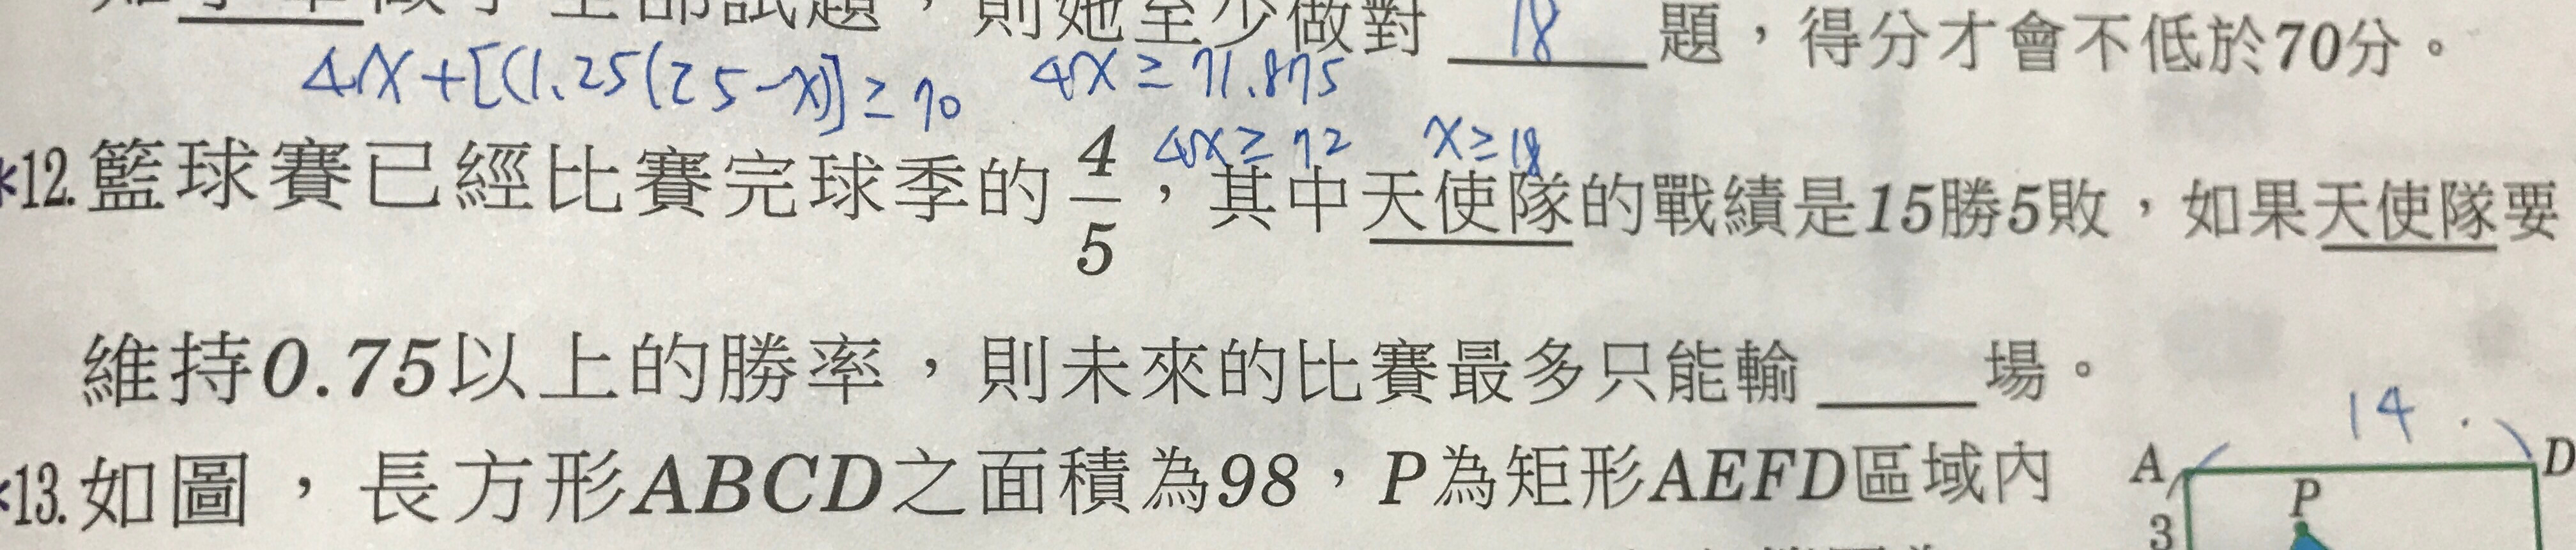 全部試題，則她至少做對 18 題，得分才會不低於70分。
4x+[(1.25(25-x)]≥70 4x≥71.875
4x≥72 x≥18
*12.籃球賽已經比賽完球季的4/5，其中天使隊的戰績是15勝5敗，如果天使隊要
維持0.75以上的勝率，則未來的比賽最多只能輸____場。
14
*13.如圖，長方形ABCD之面積為98，P為矩形AEFD區域內
A D
P
3